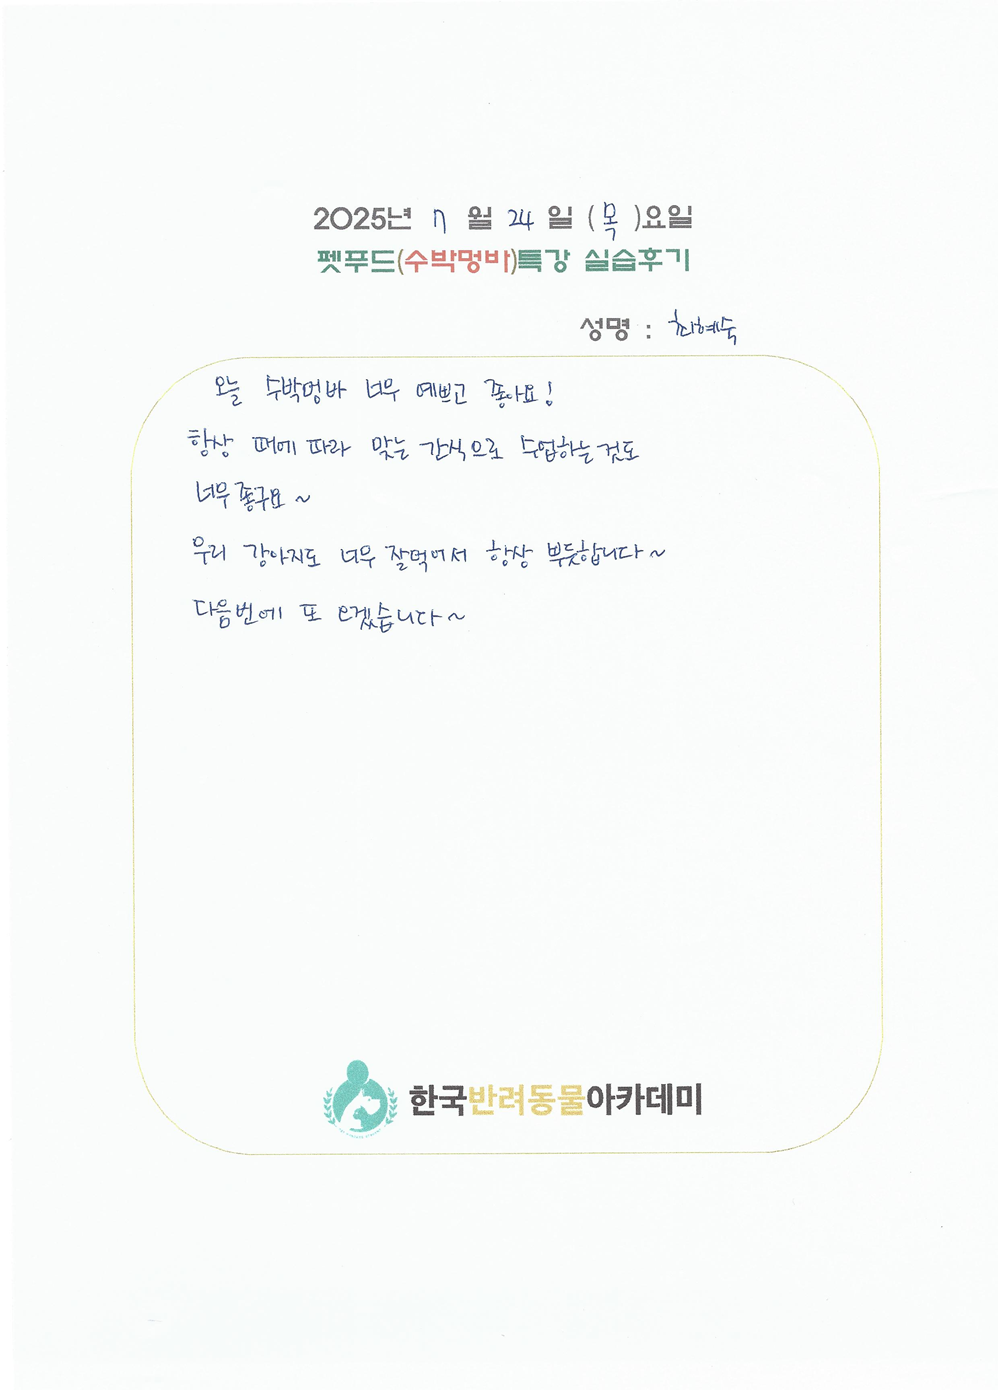 2025년 7 월 24 일 (목)요일
펫푸드(수박멍바)특강 실습후기
성명 : 최혜숙
오늘 수박멍바 너무 예쁘고 좋아요!
항상 때에 따라 맞는 간식으로 수업하는것도
너무좋구요~
우리 강아지도 너무 잘먹어서 항상 뿌듯합니다~
다음번에 또 오겠습니다~
한국반려동물아카데미